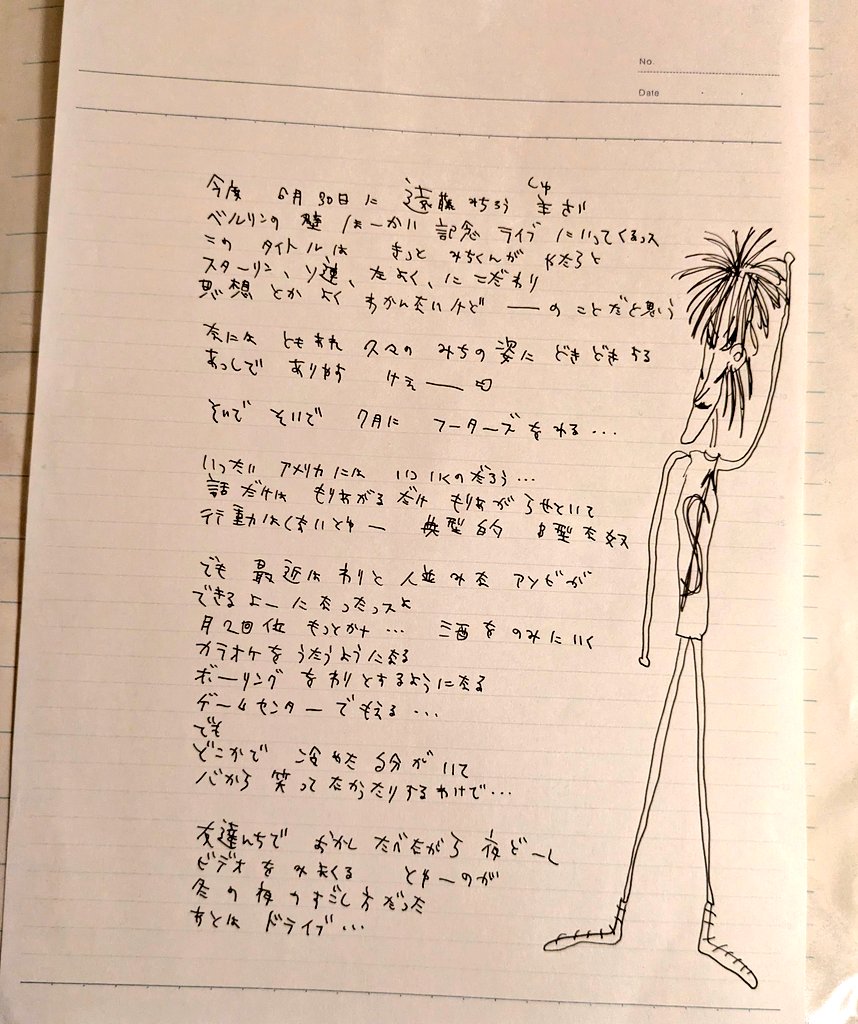 No.
Date
今度 6月30日に 遠藤みちろう しゅ
ベルリンの壁 記念 ライブ にいってくるっス
このタイトルは きっと みちくんが やたらと
スターリン、ソ連、左よく、にこだわり
思想とか よく わかんないけど ーのことだと思う
なには ともあれ 久々の みちの姿に どきどきする
あっしで ありやす けえ――
そいで そいで 7月に フーターズをみる…
いったい アメリカには いつ いくのだろう…
話だけは もりあがるだけ もりあがらせといて
行動はしないとゆー 典型的 B型な奴
でも 最近は わりと 人並みな アソビが
できるよーになったっスよ
月2回位 もっとかナ… 酒を のみにいく
カラオケを うたうようになる
ボーリング を わりとするようになる
ゲームセンターでもえる…
でも
どこかで 冷めた 自分がいて
心から 笑って なかったりするわけで…
友達んちで おかし たべながら 夜どーし
ビデオ を みまくる とゆーのが
冬の夜のすごし方だった
あとは ドライブ…